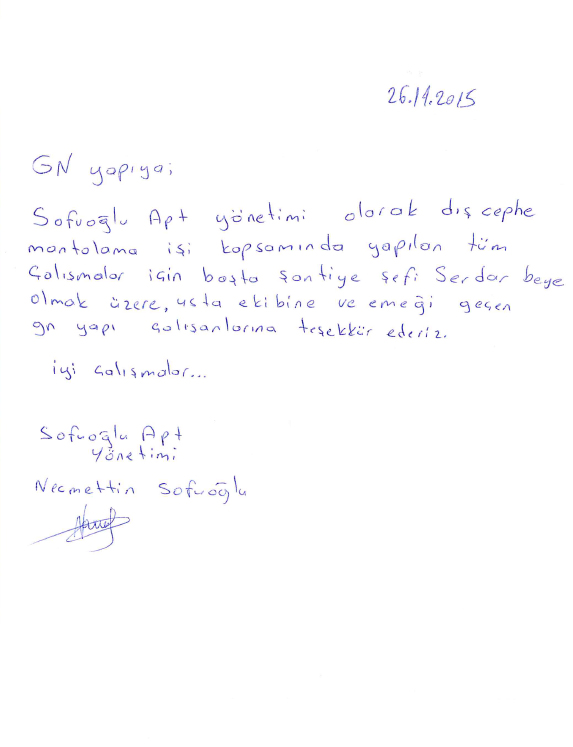 26.11.2015
GN yapıya;
Sofuoğlu Apt yönetimi olarak dış cephe
mantolama işi kapsamında yapılan tüm
Çalışmalar için başta Şantiye şefi Serdar beye
olmak üzere, usta ekibine ve emeği geçen
gn yapı çalışanlarına teşekkür ederiz.
iyi çalışmalar...
Sofuoğlu Apt
Yönetimi
Necmettin Sofuoğlu